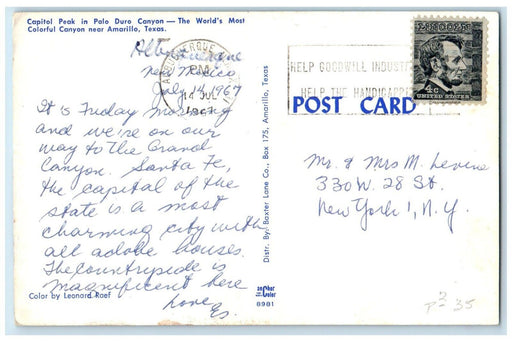 Capitol Peak in Palo Duro Canyon — The World's Most
Colorful Canyon near Amarillo, Texas.
Albuquerque
New Mexico
July 14, 1967
It is Friday morning
and we're on our
way to the Grand
Canyon. Santa Fe,
the capital of the
state is a most
charming city with
all adobe houses.
The countryside is
magnificent here
Love,
Es.
Color by Leonard Roef
Distr. By: Baxter Lane Co., Box 175, Amarillo, Texas
Color
8981
ALBUQUERQUE
PM
14 JUL
1967
HELP GOODWILL INDUSTR
HELP THE HANDICAPPE
4c
UNITED STATES
POST CARD
Mr. & Mrs M. Levine
330 W. 28 St.
New York 1, N.Y.
35